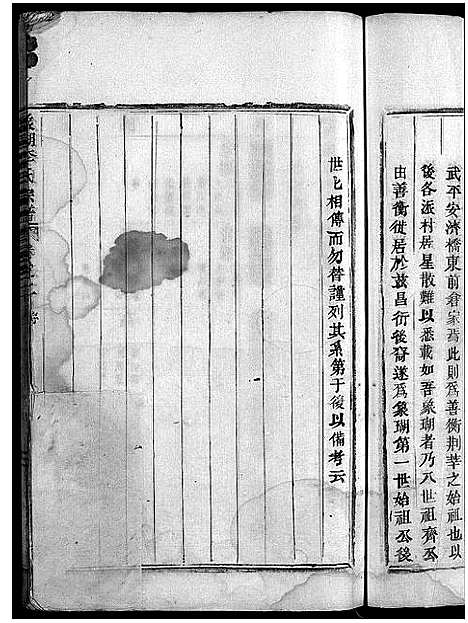 武平安濟橋東前倉家焉此則爲善衡荆莘之始祖也以
後各派村居星散難以悉載如吾象瑚者乃八世祖齊丕
由善衡徙居於兹昌衍後裔遂爲象瑚第一世始祖丕後
世匕相傳而勿替謹列其系第于後以備考云